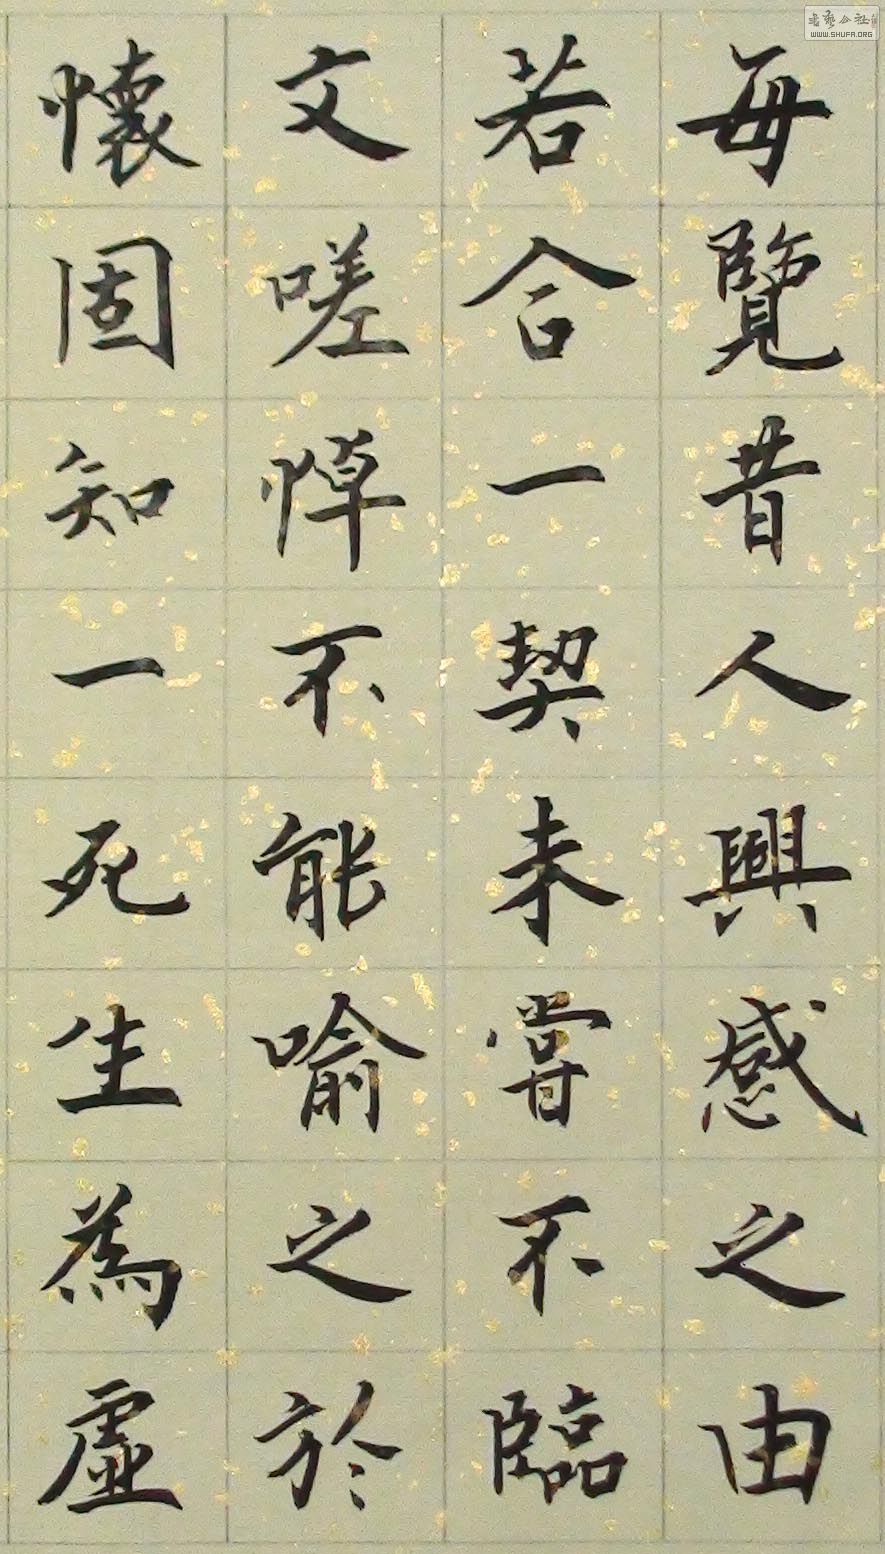 每覽昔人興感之由
若合一契未嘗不臨
文嗟悼不能喻之於
懷固知一死生為虛
WWW.SHUFA.ORG